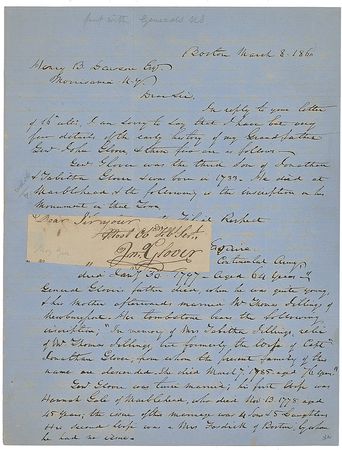 put with Generals MS
Boston March 8. 1860
Henry B Dawson Esq
Morrisania N.Y.
Dear Sir,
In reply to your letter
of ulto, I am sorry to say that I have but very
few details of the early history of my Grandfather
Genl John Glover & these few are as follows—
Genl Glover was the third son of Jonathan
& Tabitha Glover & was born in 1732. He died at
Marblehead & the following is the inscription on his
Monument in that Town
Respect
Most Obd Hble Servt
Jno Glover
Continental Army
died Jany 30, 1797. Aged 64 years"
General Glovers father died, when he was quite young,
& his Mother afterwards married Mr Thomas Jillings, of
Newburyport. Her tombstone bears the following
inscription, "In memory of Mrs Tabitha Jillings, relict
of Mr Thomas Jillings, but formerly the wife of Capt
Jonathan Glover, from whom the present family of this
name are descended. She died March, 1785 aged years"
Genl Glover was twice married, his first wife was
Hannah Gale of Marblehead, who died Nov 13. 1778 aged
45 years; the issue of this marriage was 4 Sons & 5 Daughters
His second wife was a Mrs Fosdick of Boston, by whom
he had no issue.